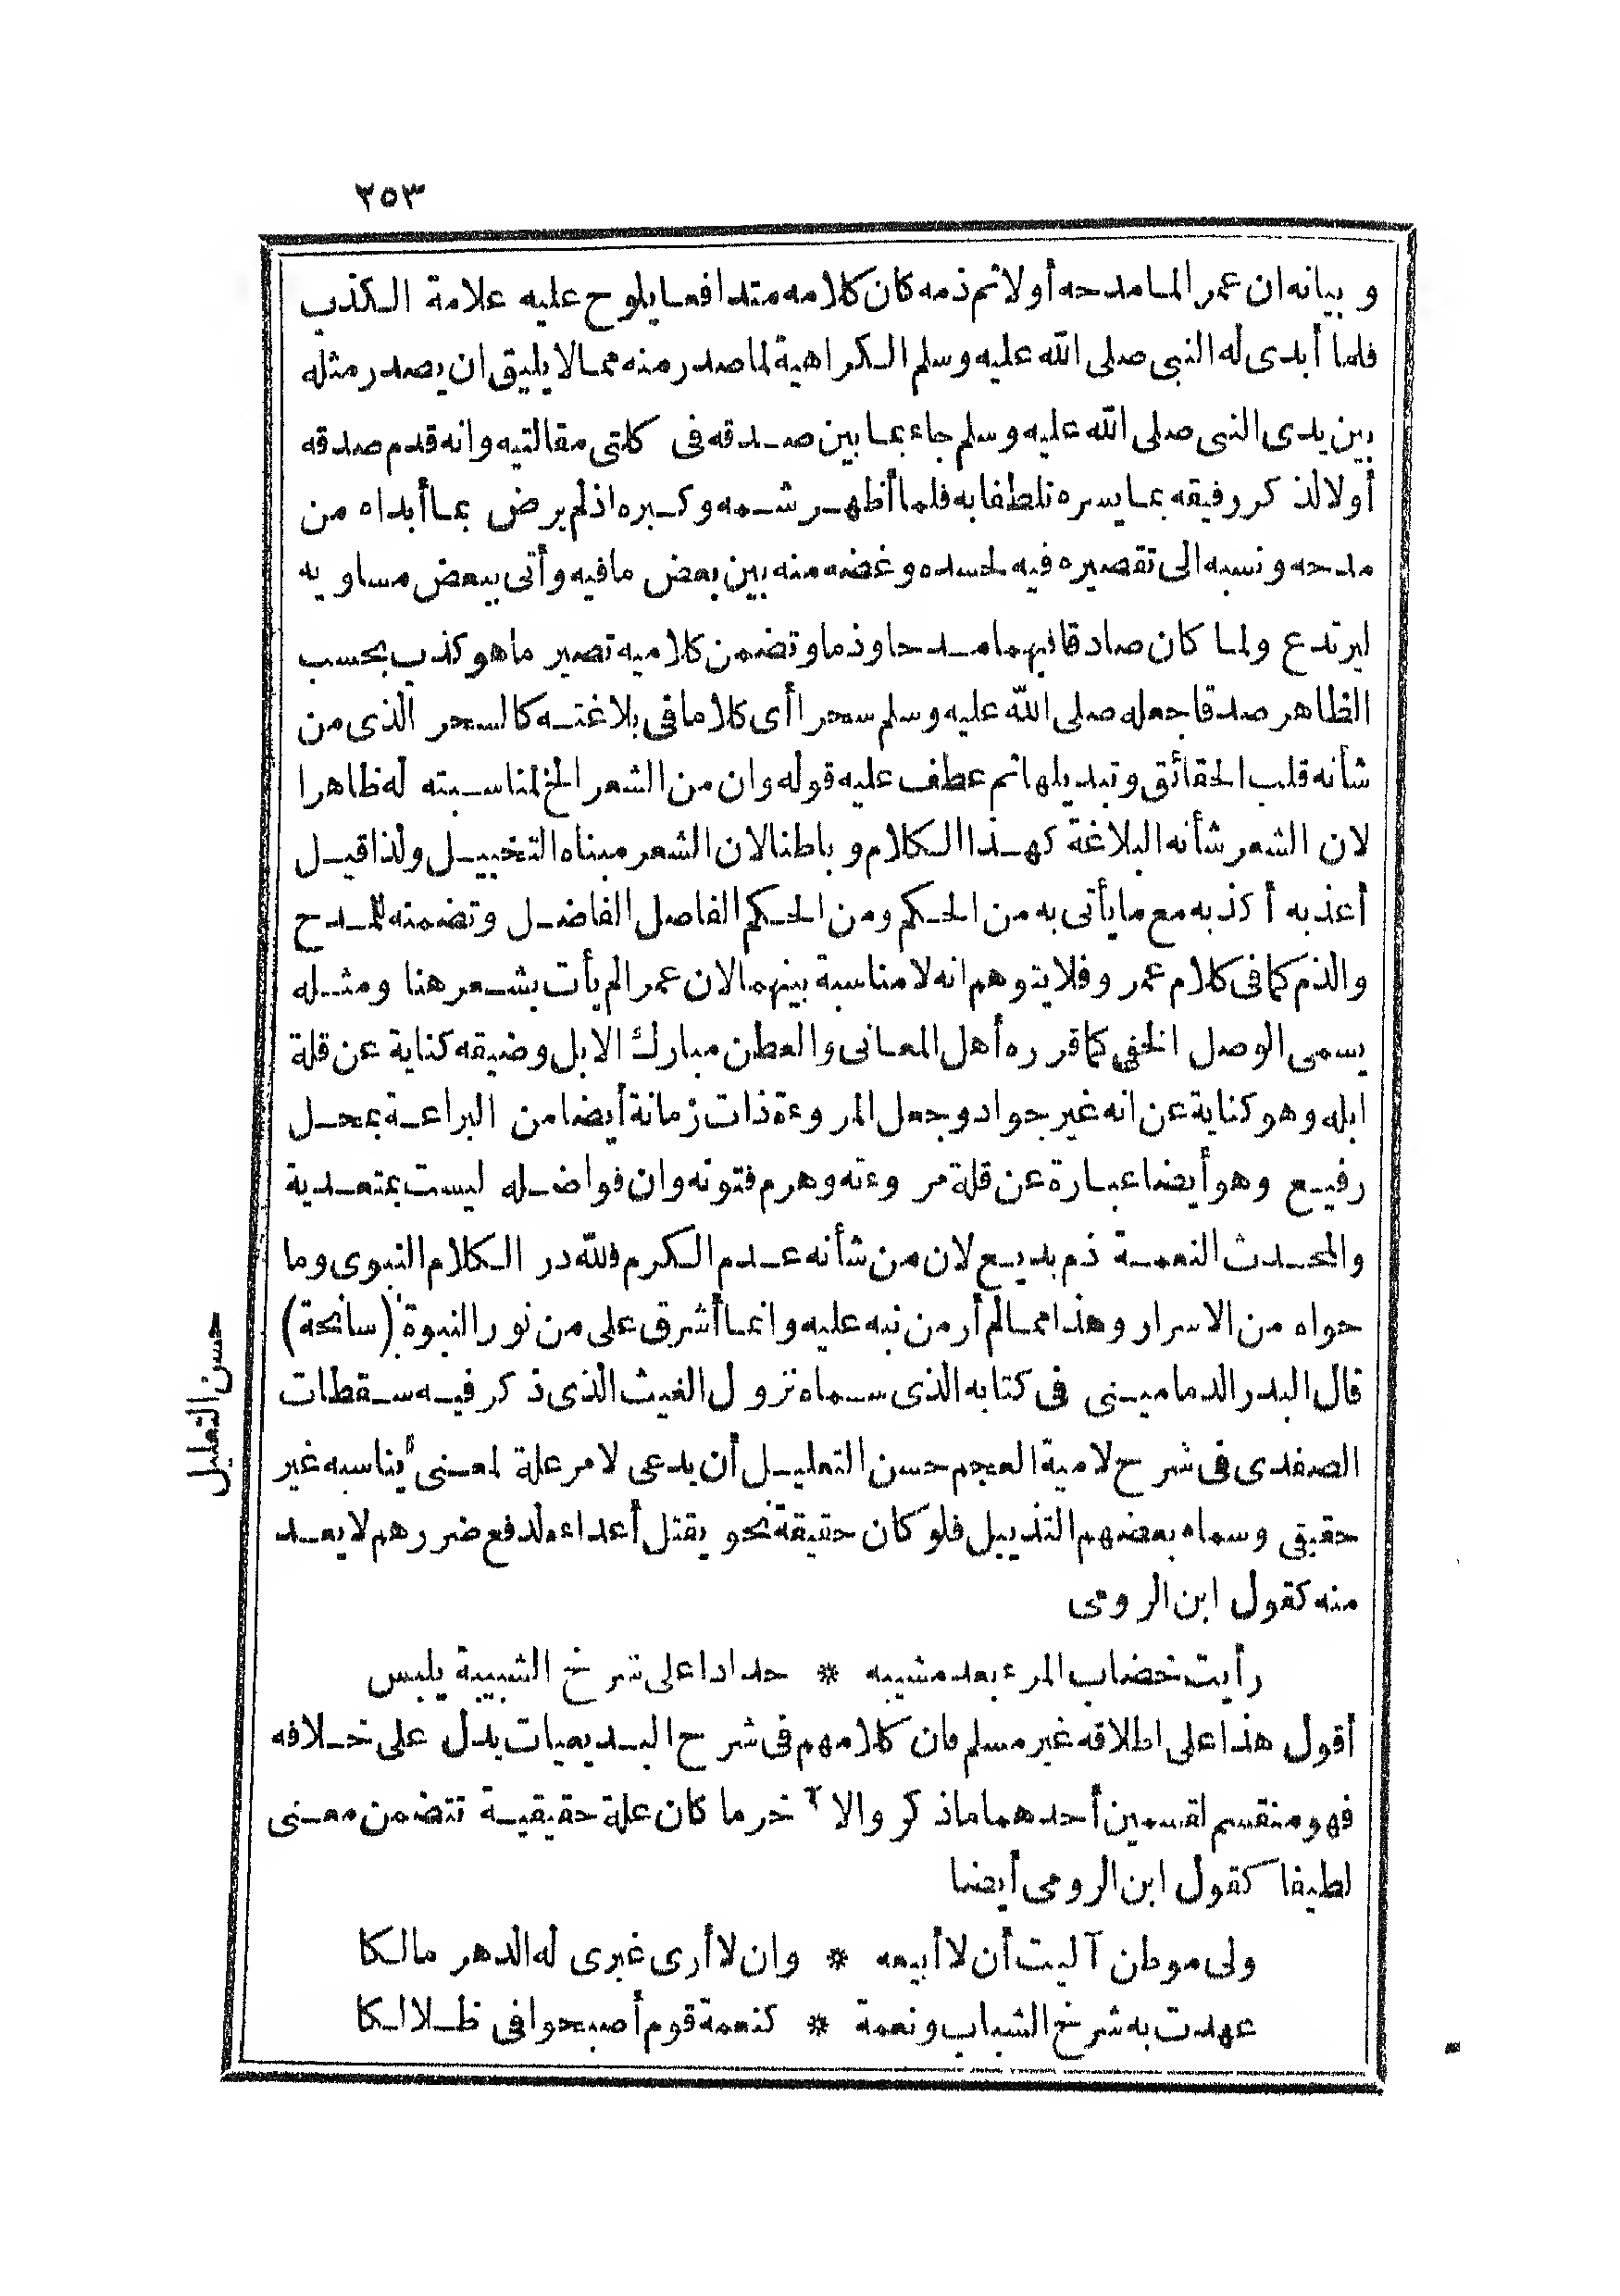 ٢٥٣
وبيانه ان عمرا لما مدحه أولا ثم ذمه كان كلامه متدافعا يلوح عليه علامة الكذب
فلما أبدى له النبى صلى الله عليه وسلم الكراهية لما صدر منه مما لا يليق ان يصدر مثله
بين يدى النبى صلى الله عليه وسلم جاء بما بين صدقه فى كلتى مقالتيه وانه قدم صدقه
أولا لذكر رفيقه بما يسره تلطفا به فلما أظهر شممه وكبره اذ لم يرض بما أبداه من
مدحه ونسبه الى تقصيره فيه لحسده وغضه منه بين بعض ما فيه وأتى ببعض مساويه
ليرتدع ولما كان صادقا فيهما مدحا وذما وتضمن كلاميه تصير ما هو كذب بحسب
الظاهر صدقا جعله صلى الله عليه وسلم سحرا أى كلاما فى بلاغته كالسحر الذى من
شأنه قلب الحقائق وتبديلها ثم عطف عليه قوله وان من الشعر الخ لمناسبته له ظاهرا
لان الشعر شأنه البلاغة كهذا الكلام وباطنا لان الشعر مبناه التخييل ولذا قيل
أعذبه أكذبه مع ما يأتى به من الحكم ومن الحكم الفاصل الفاضل وتضمنه للمدح
والذم كما فى كلام عمرو فلا يتوهم انه لا مناسبة بينهما لان عمرا لم يأت بشعر هنا ومثله
يسمى الوصل الخفى كما قرره أهل المعانى والعطن مبارك الابل وضيقه كناية عن قلة
ابله وهو كناية عن انه غير جواد وجعل المروءة ذات زمانة أيضا من البراعة بمحل
رفيع وهو أيضا عبارة عن قلة مروءته وهرم فتوته وان فواضله ليست بمتعدية
والمحدث النعمة ذم بديع لان من شأنه عدم الكرم فلله در الكلام النبوى وما
حواه من الاسرار وهذا مما لم أر من نبه عليه وانما أشرق على من نور النبوة (سانحة)
قال البدر الدمامينى فى كتابه الذى سماه نزول الغيث الذى ذكر فيه سقطات
الصفدى فى شرح لامية العجم حسن التعليل أن يدعى لامر علة لمعنى يناسبه غير
حقيقى وسماه بعضهم التذييل فلو كان حقيقة نحو يقتل أعداءه لدفع ضررهم لا يعد
منه كقول ابن الرومى
رأيت خضاب المرء بعد مشيبه * حدادا على شرخ الشبيبة يلبس
أقول هذا على اطلاقه غير مسلم فان كلامهم فى شرح البديعيات يدل على خلافه
فهو منقسم لقسمين أحدهما ما ذكر والآخر ما كان علة حقيقية تتضمن معنى
لطيفا كقول ابن الرومى أيضا
ولى موطن آليت أن لا أبيعه * وان لا أرى غيرى له الدهر مالكا
عهدت به شرخ الشباب ونعمة * كنعمة قوم أصبحوا فى ظلالكا
حسن التعليل